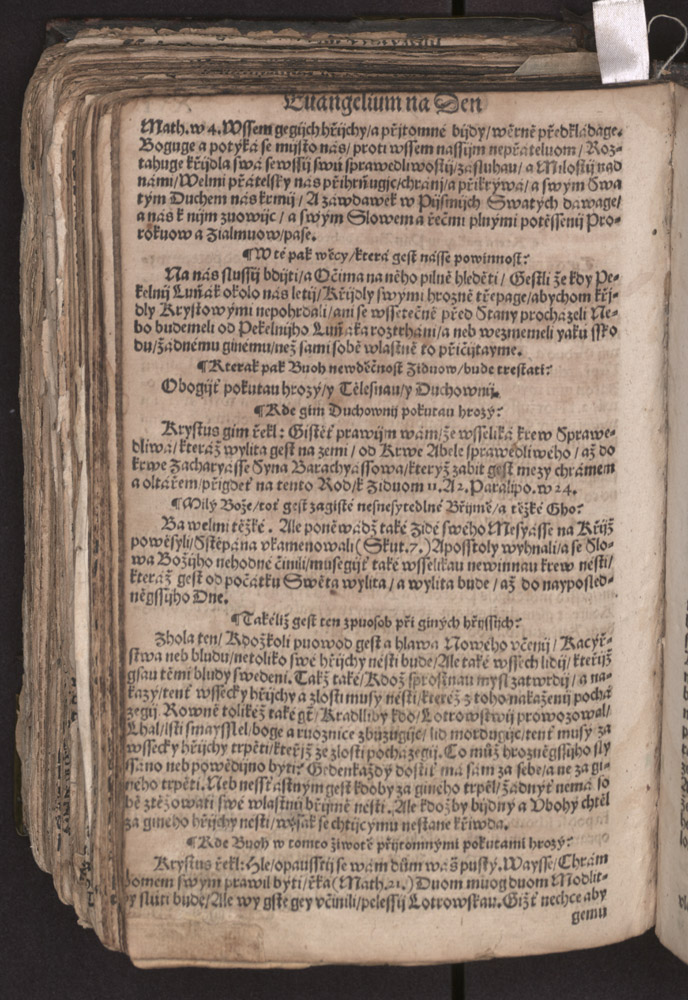 Euangelium na Den
Math. w 4. Wssem gegijch hřijchy/a přjtomné bijdy/wěrně předkládage.
Boguge a potýká se mijsto nás/proti wssem nassijm nepřáteluom/Roz-
tahuge křijdla swá se wssij swú sprawedliwostij/zásluhau/a Milostij nad
námi/Welmi přátelsky nás přihrňugje/chránj/a přikrýwá/a swým Swa
tým Duchem nás krmij/A zawdawek w Pijsmijch Swatých dáwage/
a nás k nijm zuowijc/a swým Slowem a řečmi plnými potěssenij Pro-
rokuow a Žialmuow/pase.
¶W té pak wěcy/která gest násse powinnost?
Na nás slussij bdijti/a Očima na něho pilně hleděti/Gestli že kdy Pe-
kelnij Luňák okolo nás letij/Křijdly swými hrozně třepage/abychom křj-
dly Krystowými nepohrdali/ani se wssetečně před Stany procházeli Ne-
bo budemeli od Pekelnijho Luňáka roztrháni/a neb wezmemeli yaku sko
du/žádnému ginému/než sami sobě wlastně to přičijtayme.
¶Kterak pak Buoh newděčnost Židuow/bude trestati?
Obogijť pokutau hrozý/y Tělesnau/y Duchownij.
¶Kde gim Duchownij pokutau hrozý?
Krystus gim řekl: Gistěť prawijm wám/že wsseliká krew Sprawe-
dliwá/kteráž wylita gest na zemi/od Krwe Abele sprawedliwého/až do
krwe Zacharyásse Syna Barachyássowa/kterýž zabit gest mezy chrámem
a oltářem/přigdeť na tento Rod/k Židuom 11. A 2. Paralipo. w 24.
¶Milý Bože/toť gest zagisté nesnesytedlné Břijmě/a těžké Gho?
Ba welmi těžké. Ale poněwadž také Židé swého Mesyásse na Křijž
powěsyli/Sstěpána vkamenowali (Skut. 7.) Aposstoly wyhnali/a se Slo-
wa Božijho nehodné činili/musegijť také wsselikau newinnau krew nésti/
kteráž gest od počátku Swěta wylita/a wylita bude/až do nayposled-
něgssijho Dne.
¶Takéliž gest ten zpuosob při giných hřijssijch?
Zhola ten/Kdožkoli puowod gest a hlawa Nowého včenij/Kacýř-
stwa neb bludu/netoliko swé hřijchy nésti bude/Ale také wssech lidij/kteřijž
gsau těmi bludy swedeni. Takž také/Kdož sprostnau mysl zatwrdij/a na-
kazý/tenť wssecky hřijchy a zlosti musý nésti/kteréž z toho nakaženij pochá
zegij. Rowně tolikéž také gt/Kradlliby kdo/Lotrowstwij prowozowal/
Lhal/lsti smayssslel/boge a ruoznice zbuzugije/lid mordugije/tenť musý za
wssecky hřijchy trpěti/kteřjž ze zlosti pocházegij. Co muož hrozněgssijho sly
ssáno neb powědijno býti? Gedenkaždý dostiť má sám za sebe/a ne za gi-
ného trpěti. Neb nessťastným gest kdoby za giného trpěl/žádnýť nemá so
bě ztěžowati swé wlastnij břijmě nésti. Ale kdožby bijdný a Vbohý chtěl
za giného hřijchy nésti/wssak se chtijcymu nestane křiwda.
¶Kde Buoh w tomto žiwotě přijtomnými pokutami hrozý?
Krystus řekl: Hle/opausstij se wám dům wáš pustý. Waysse/Chrám
Domem swým prawil býti/řka (Math. 21.) Duom muog duom Modlit-
by slúti bude/Ale wy gste gey včinili/pelessij Lotrowskau. Gižť nechce aby
gemu